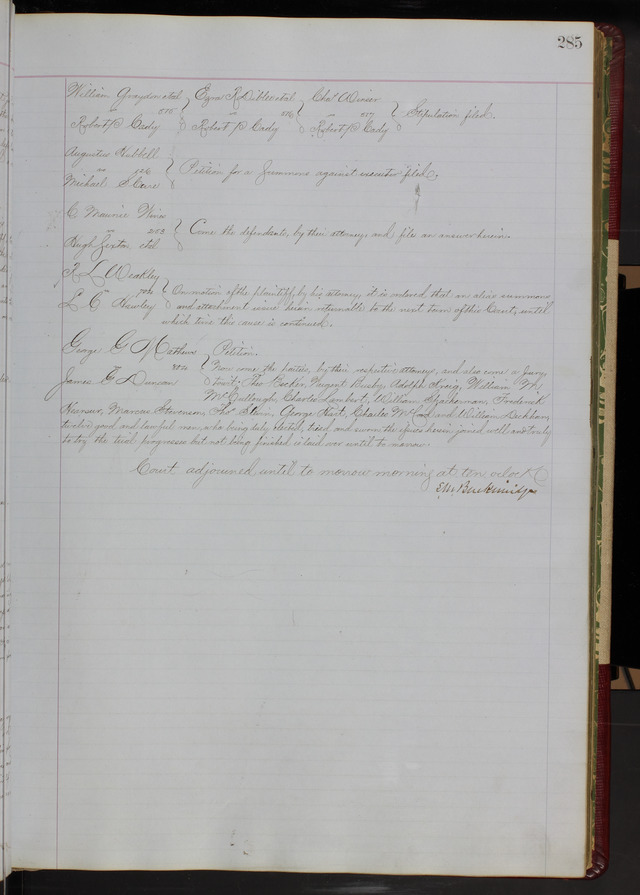 285
William Graydon etal } Ezra R Dibble etal } Chas Winser }
vs 555 vs 556 vs 557 Stipulation filed.
Robert P Cady } Robert P Cady } Robert P Cady }
Augustus Hubbell
vs 726 } Petition for a Summons against executor filed.
Michael S
C Maurice
vs 202 } Come the defendants, by their attorneys and file an answer herein.
Hugh Sexton, etal
L Weakley
vs 704 } On motion of the plaintiff, by his attorney, it is ordered that an alias summons
L C Hawley } and attachment issue herein returnable to the next term of this Court, until
which time this cause is continued.
George G Mathews } Petition.
vs } Now come the parties, by their respective attorneys, and also come a Jury
James G Duncan } to wit: Theo Becker, Nugent Busby, Adolph William
McCullough, Charles Lambert, William Frederick
Marcus Stevenson, Thos Stein, George Charles and William
twelve good and lawful men, who being duly elected, tried and sworn the issues herein joined well and truly
to try the trial progresses but not being finished is laid over until to morrow.
Court adjourned until to morrow morning at ten oclock